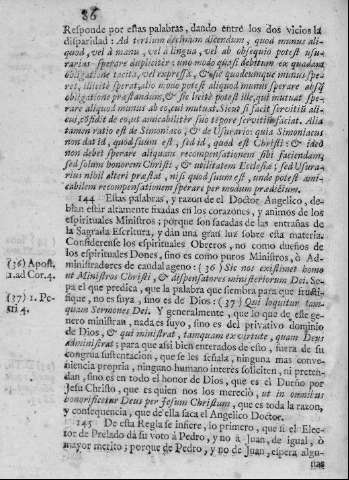 86
Responde por estas palabras, dando entre los dos vicios la
disparidad: Ad tertium dicendum dicendum, quod munus ali-
quod, vel à manu, vel à lingua, vel ab obsequio potest usu-
rarius sperare dupliciter: uno modo quasi debitum ex quadam
obligatione tacita, vel expressa, & sic quodcumque munus spe-
ret, illicitè sperat, alio modo potest aliquod munus sperare absq;
obligatione præstandum, & sic licitè potest ille, qui mutuat spe-
rare aliquod munus ab eo, cui mutuat. Sicut, si facit servitiũ ali-
cui, cõfidit de eo, ut amicabiliter suo tẽpore servitiũ faciat. Alia
tamen ratio est de Simoniaco, & de Usurario: quia Simoniacus
non dat id, quod suum est, sed id, quod est Christi: & ideò
non debet sperare aliquam recompensationem sibi faciendam,
sed solum honorem Christi, & utilitatem Ecclesiæ; sed Usura-
rius nihil alteri præstat, nisi quod suum est, unde potest ami-
cabilem recompensationem sperare per modum prædictum.
144 Estas palabras, y razon de el Doctor Angelico, de-
bian estàr altamente fixadas en los corazones, y animos de los
espirituales Ministros; porque son sacadas de las entrañas de
la Sagrada Escritura, y dàn una gran luz sobre esta materia.
Considerense los espirituales Obreros, no como dueños de
los espirituales Dones, sino es como puros Ministros, ò Ad-
ministradores de caudal ageno: (36) Sic nos existimet homo
(36) Apost.
1. ad Cor. 4.
ut Ministros Christi, & dispensatores ministeriorum Dei. Sepa
el que predica, que la palabra que siembra para que fructi-
fique, no es suya, sino es de Dios: (37) Qui loquitur tan-
(37) 1. Pe-
tri 4.
quam Sermones Dei. Y generalmente, que lo que de este ge-
nero ministran, nada es suyo, sino es del privativo dominio
de Dios, & qui ministrat, tamquam ex virtute, quam Deus
administrat; para que assi bien enterados de esto, fuera de su
congrua sustentacion, que se les señala, ninguna mas conve-
niencia propria, ninguno humano interès soliciten, ni preten-
dan, sino es en todo el honor de Dios, que es el Dueño por
Jesu Christo, que es quien nos los mereciò, ut in omnibus
honorificetur Deus per Jesum Christum, que es toda la razon,
y consequencia, que de ella saca el Angelico Doctor.
145 De esta Regla se infiere, lo primero, que si el Elec-
tor de Prelado dà su voto à Pedro, y no à Juan, de igual, ò
mayor merito; porque de Pedro, y no de Juan, espera algu-
nas